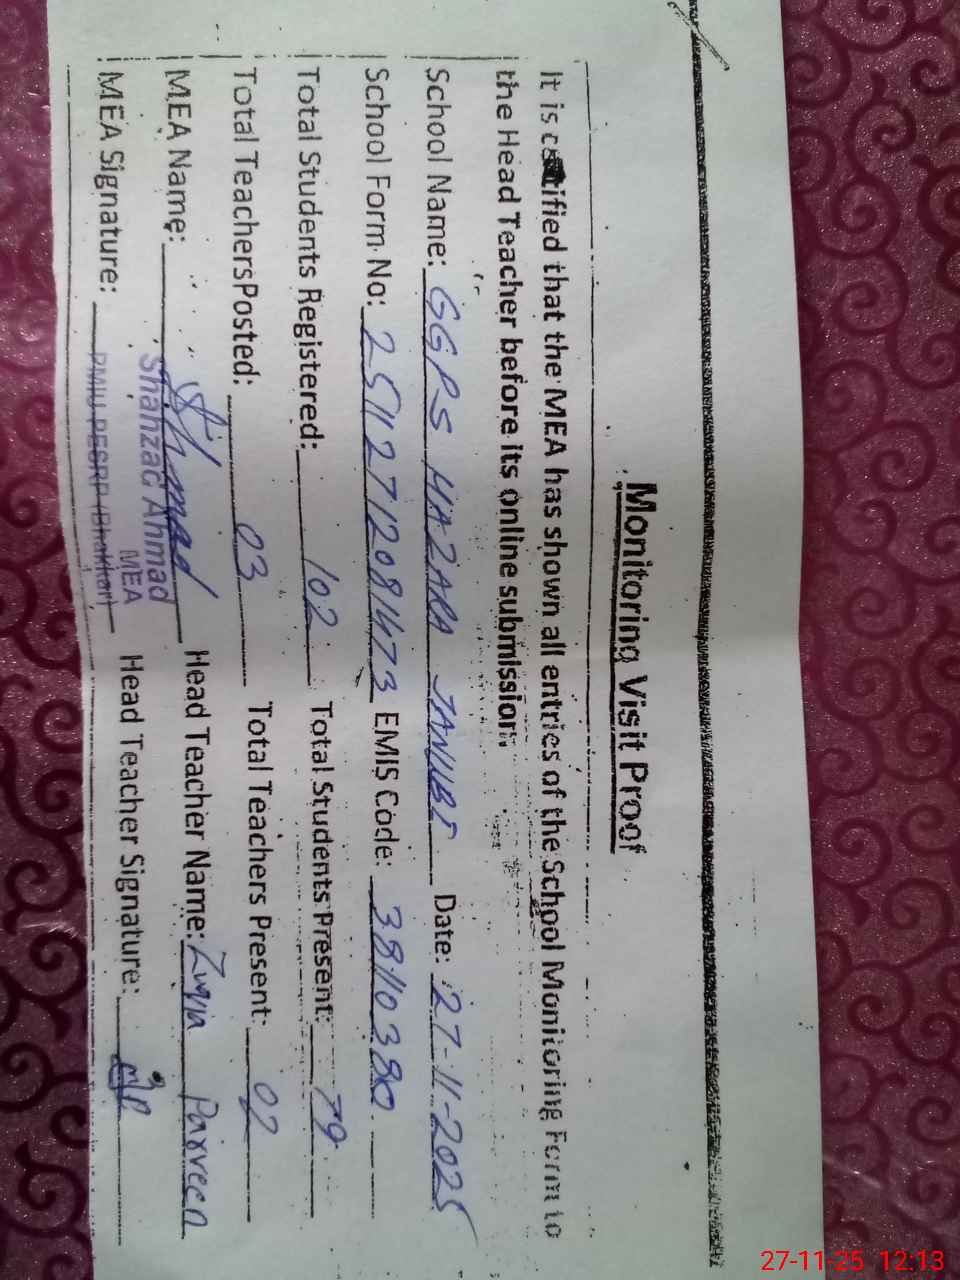 Monitoring Visit Proof
It is certified that the MEA has shown all entries of the School Monitoring Form to
the Head Teacher before its online submission.
School Name: GGPS HAZARA JANUBI Date: 27-11-2025
School Form No: 25112712081473 EMIS Code: 38110380
Total Students Registered: 102 Total Students Present: 79
Total TeachersPosted: 03 Total Teachers Present: 02
MEA Name: Head Teacher Name: Parveen
Shahzad Ahmad
MEA
MEA Signature: PMIU-PESRP (Bhakkar) Head Teacher Signature:
27-11-25 12:13